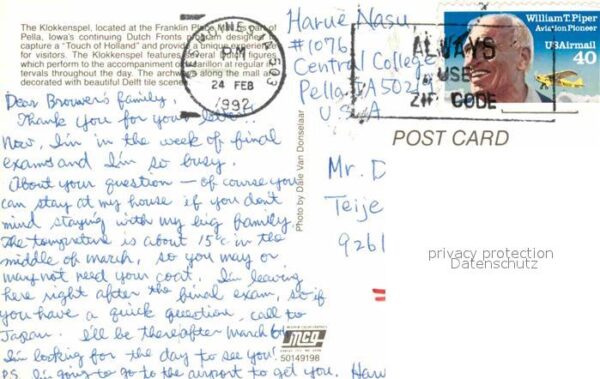 The Klokkenspel, located at the Franklin Place Mall, is part of
Pella, Iowa's continuing Dutch Fronts program designed to
capture a "Touch of Holland" and provide a unique experience
for visitors. The Klokkenspel features several Dutch figures
which perform to the accompaniment of carillon at regular in-
tervals throughout the day. The archways along the mall are
decorated with beautiful Delft tile scenes.
Dear Brouwer's family,
Thank you for your letter.
Now, I'm in the week of final
exams and I'm so busy.
About your question - of course you
can stay at my house if you don't
mind staying with my big family.
The tempreture is about 15°C in the
middle of march, so you may or
may not need your coat. I'm leaving
here right after the final exam, so if
you have a quick question, call to
Japan. I'll be there after March 6
I'm looking for the day to see you!
P.S. I'm going to go to the airport to get you. Harue
PM
24 FEB
1992
503
Harue Nasu
#1076
Central College
Pella IA 502
U.S.A
ALWAYS
USE
ZIP CODE
William T. Piper
Aviation Pioneer
USAirmail
40
POST CARD
Photo by Dale Van Donselaar
Mr. D
Teije
9261
privacy protection
Datenschutz
mcg
50149198